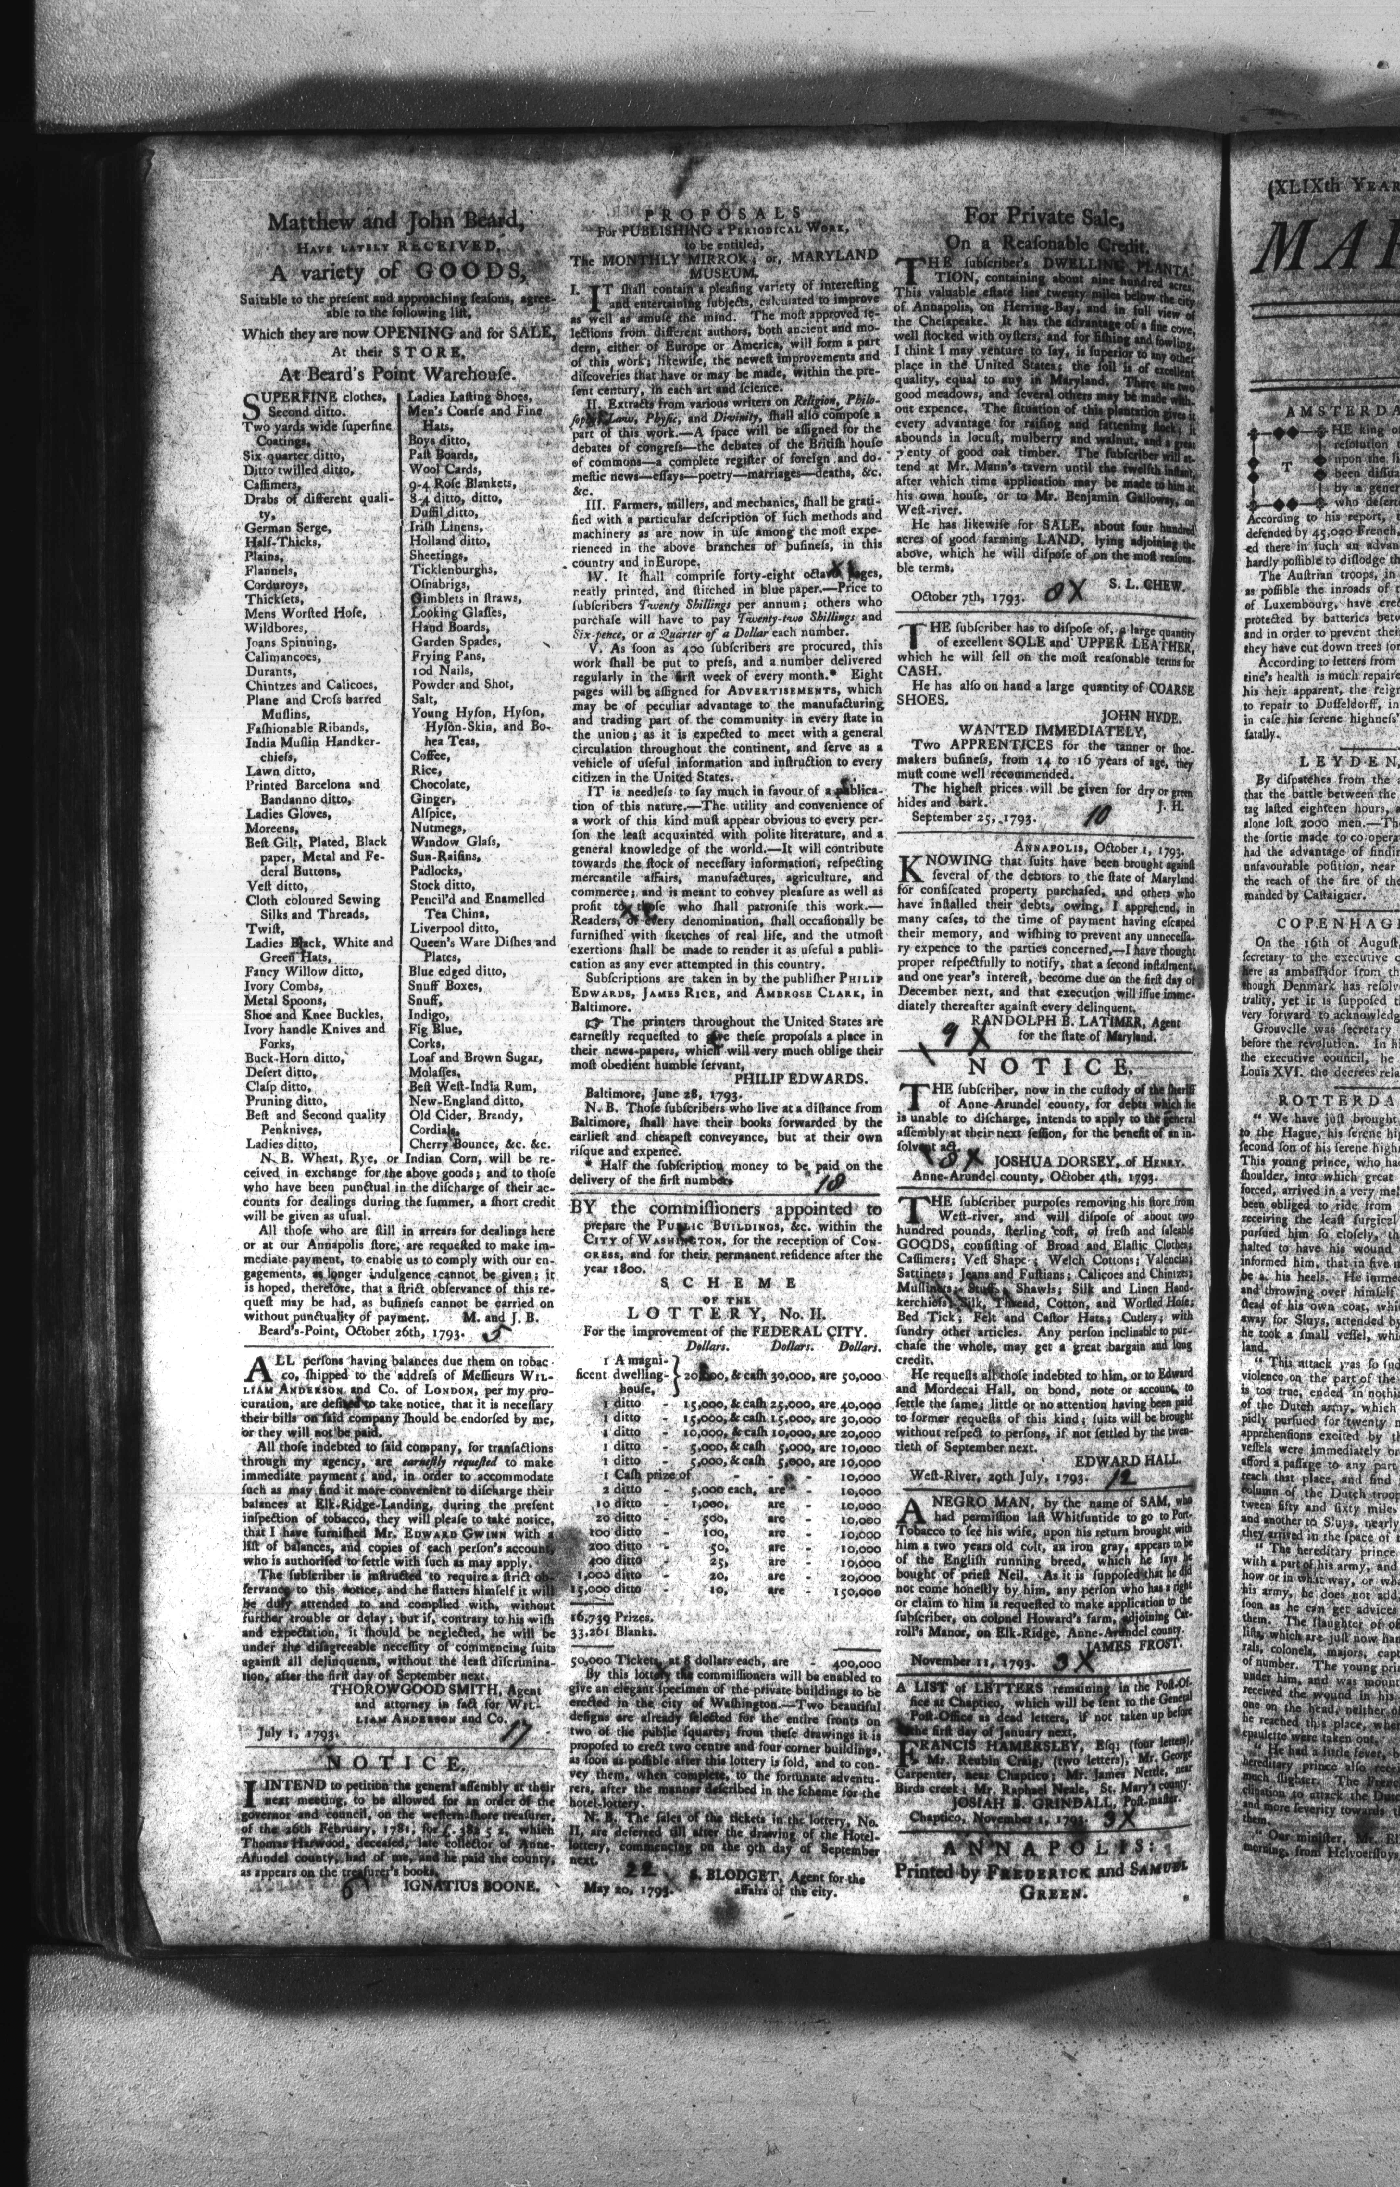 Matthew and John Beard,
HAVE LATELY RECEIVED,
A variety of GOODS,
Suitable to the present and approaching ſeaſons, agree-
able to the following liſt,
Which they are now OPENING and for SALE,
At their STORE,
At Beard's Point Warehouſe.
SUPERFINE clothes,
Second ditto.
Two yards wide ſuperfine
Coatings,
Six quarter ditto,
Ditto twilled ditto,
Caſſimers,
Drabs of different quali-
ty,
German Serge,
Half-Thicks,
Plains,
Flannels,
Corduroys,
Thickſets,
Mens Worſted Hoſe,
Wildbores,
Joans Spinning,
Calimancoes,
Durants,
Chintzes and Calicoes,
Plane and Croſs barred
Muſlins,
Faſhionable Ribands,
India Muſlin Handker-
chiefs,
Lawn ditto,
Printed Barcelona and
Bandanno ditto,
Ladies Gloves,
Moreens,
Beſt Gilt, Plated, Black
paper, Metal and Fe-
deral Buttons,
Veſt ditto,
Cloth coloured Sewing
Silks and Threads,
Twiſt,
Ladies Black, White and
Green Hats,
Fancy Willow ditto,
Ivory Combs,
Metal Spoons,
Shoe and Knee Buckles,
Ivory handle Knives and
Forks,
Buck-Horn ditto,
Deſert ditto,
Claſp ditto,
Pruning ditto,
Beſt and Second quality
Penknives,
Ladies ditto,
Ladies Laſting Shoes,
Men's Coarſe and Fine
Hats,
Boys ditto,
Paſt Boards,
Wool Cards,
9-4 Roſe Blankets,
8-4 ditto, ditto,
Duffil ditto,
Iriſh Linens,
Holland ditto,
Sheetings,
Ticklenburghs,
Oſnabrigs,
Gimblets in ſtraws,
Looking Glaſſes,
Hand Boards,
Garden Spades,
Frying Pans,
10d Nails,
Powder and Shot,
Salt,
Young Hyſon, Hyſon,
Hyſon-Skin, and Bo-
hea Teas,
Coffee,
Rice,
Chocolate,
Ginger,
Alſpice,
Nutmegs,
Window Glaſs,
Sun-Raiſins,
Padlocks,
Stock ditto,
Pencil'd and Enamelled
Tea China,
Liverpool ditto,
Queen's Ware Diſhes and
Plates,
Blue edged ditto,
Snuff Boxes,
Snuff,
Indigo,
Fig Blue,
Corks,
Loaf and Brown Sugar,
Molaſſes,
Beſt Weſt-India Rum,
New-England ditto,
Old Cider, Brandy,
Cordials,
Cherry Bounce, &c. &c.
N. B. Wheat, Rye, or Indian Corn, will be re-
ceived in exchange for the above goods; and to thoſe
who have been punctual in the diſcharge of their ac-
counts for dealings during the ſummer, a ſhort credit
will be given as uſual.
All thoſe who are ſtill in arrears for dealings here
or at our Annapolis ſtore, are requeſted to make im-
mediate payment, to enable us to comply with our en-
gagements, as longer indulgence cannot be given; it
is hoped, therefore, that a ſtrict obſervance of this re-
queſt may be had, as buſineſs cannot be carried on
without punctuality of payment. M. and J. B.
Beard's-Point, October 26th, 1793. 5
ALL perſons having balances due them on tobac-
co, ſhipped to the addreſs of Meſſieurs WIL-
LIAM ANDERSON and Co. of LONDON, per my pro-
curation, are deſired to take notice, that it is neceſſary
their bills on ſaid company ſhould be endorſed by me,
or they will not be paid.
All thoſe indebted to ſaid company, for tranſactions
through my agency, are earneſtly requeſted to make
immediate payment; and, in order to accommodate
ſuch as may find it more convenient to diſcharge their
balances at Elk-Ridge-Landing, during the preſent
inſpection of tobacco, they will pleaſe to take notice,
that I have furniſhed Mr. EDWARD GWINN with a
liſt of balances, and copies of each perſon's account,
who is authoriſed to ſettle with ſuch as may apply.
The ſubſcriber is inſtructed to require a ſtrict ob-
ſervance to this notice, and he flatters himſelf it will
be duly attended to and complied with, without
further trouble or delay; but if, contrary to his wiſh
and expectation, it ſhould be neglected, he will be
under the diſagreeable neceſſity of commencing ſuits
againſt all delinquents, without the leaſt diſcrimina-
tion, after the firſt day of September next.
THOROWGOOD SMITH, Agent
and attorney in fact for WIL-
LIAM ANDERSON and Co.
July 1, 1793. 17
NOTICE.
I INTEND to petition the general aſſembly at their
next meeting, to be allowed for an order of the
governor and council, on the weſtern-ſhore treaſurer,
of the 26th February, 1781, for which
Thomas Harwood, deceaſed, late collector of Anne-
Arundel county, had of me, and he paid the county,
as appears on the treaſurer's books.
6 IGNATIUS BOONE.
PROPOSALS
For PUBLISHING a PERIODICAL WORK,
to be entitled,
The MONTHLY MIRROR; or, MARYLAND
MUSEUM.
I. IT ſhall contain a pleaſing variety of intereſting
and entertaining ſubjects, calculated to improve
as well as amuſe the mind. The moſt approved ſe-
lections from different authors, both ancient and mo-
dern, either of Europe or America, will form a part
of this work; likewiſe, the neweſt improvements and
diſcoveries that have or may be made, within the pre-
ſent century, in each art and ſcience.
II. Extracts from various writers on Religion, Philo-
ſophy, Laws, Phyſic, and Divinity, ſhall alſo compoſe a
part of this work.—A ſpace will be aſſigned for the
debates of congreſs—the debates of the Britiſh houſe
of commons—a complete regiſter of foreign and do-
meſtic news—eſſays—poetry—marriages—deaths, &c.
&c.
III. Farmers, millers, and mechanics, ſhall be grati-
fied with a particular deſcription of ſuch methods and
machinery as are now in uſe among the moſt expe-
rienced in the above branches of buſineſs, in this
country and in Europe.
IV. It ſhall comprize forty-eight octavo pages,
neatly printed, and ſtitched in blue paper.—Price to
ſubſcribers Twenty Shillings per annum; others who
purchaſe will have to pay Twenty-two Shillings and
Six-pence, or a Quarter of a Dollar each number.
V. As ſoon as 400 ſubſcribers are procured, this
work ſhall be put to preſs, and a number delivered
regularly in the firſt week of every month.* Eight
pages will be aſſigned for ADVERTISEMENTS, which
may be of peculiar advantage to the manufacturing
and trading part of the community in every ſtate in
the union; as it is expected to meet with a general
circulation throughout the continent, and ſerve as a
vehicle of uſeful information and inſtruction to every
citizen in the United States.
IT is needleſs to ſay much in favour of a publica-
tion of this nature.—The utility and convenience of
a work of this kind muſt appear obvious to every per-
ſon the leaſt acquainted with polite literature, and a
general knowledge of the world.—It will contribute
towards the ſtock of neceſſary information, reſpecting
mercantile affairs, manufactures, agriculture, and
commerce; and is meant to convey pleaſure as well as
profit to thoſe who ſhall patroniſe this work.—
Readers, of every denomination, ſhall occaſionally be
furniſhed with ſketches of real life, and the utmoſt
exertions ſhall be made to render it as uſeful a publi-
cation as any ever attempted in this country.
Subſcriptions are taken in by the publiſher PHILIP
EDWARDS, JAMES RICE, and AMBROSE CLARK, in
Baltimore.
☞ The printers throughout the United States are
earneſtly requeſted to give theſe propoſals a place in
their news-papers, which will very much oblige their
moſt obedient humble ſervant,
PHILIP EDWARDS.
Baltimore, June 28, 1793.
N. B. Thoſe ſubſcribers who live at a diſtance from
Baltimore, ſhall have their books forwarded by the
earlieſt and cheapeſt conveyance, but at their own
riſque and expence.
* Half the ſubſcription money to be paid on the
delivery of the firſt number. 18
BY the commiſſioners appointed to
prepare the PUBLIC BUILDINGS, &c. within the
CITY of WASHINGTON, for the reception of CON-
GRESS, and for their permanent reſidence after the
year 1800.
SCHEME
OF THE
LOTTERY, No. II.
For the improvement of the FEDERAL CITY.
Dollars. Dollars. Dollars.
1 A magni-
ficent dwelling- } 20,000, & caſh 30,000, are 50,000
houſe,
1 ditto - 15,000, & caſh 25,000, are 40,000
1 ditto - 15,000, & caſh 15,000, are 30,000
1 ditto - 10,000, & caſh 10,000, are 20,000
1 ditto - 5,000, & caſh 5,000, are 10,000
1 ditto - 5,000, & caſh 5,000, are 10,000
1 Caſh prize of - - - 10,000
2 ditto - 5,000 each, are - 10,000
10 ditto - 1,000, are - 10,000
20 ditto - 500, are - 10,000
100 ditto - 100, are - 10,000
200 ditto - 50, are - 10,000
400 ditto - 25, are - 10,000
1,000 ditto - 20, are - 20,000
15,000 ditto - 10, are - 150,000
16,739 Prizes.
33,261 Blanks.
50,000 Tickets, at 8 dollars each, are - 400,000
By this lottery the commiſſioners will be enabled to
give an elegant ſpecimen of the private buildings to be
erected in the city of Waſhington.—Two beautiful
deſigns are already ſelected for the entire fronts on
two of the public ſquares; from theſe drawings it is
propoſed to erect two centre and four corner buildings,
as ſoon as poſſible after this lottery is ſold, and to con-
vey them, when complete, to the fortunate adventu-
rers, after the manner deſcribed in the ſcheme for the
hotel-lottery.
N. B. The ſales of the tickets in the lottery, No.
II, are deferred till after the drawing of the Hotel-
lottery, commencing on the 9th day of September
next.
22 S. BLODGET, Agent for the
May 20, 1793. affairs of the city.
For Private Sale,
On a Reaſonable Credit,
THE ſubſcriber's DWELLING PLANTA-
TION, containing about nine hundred acres,
This valuable eſtate lies twenty miles below the city
of Annapolis, on Herring-Bay, and in full view of
the Cheſapeake. It has the advantage of a fine cove,
well ſtocked with oyſters, and for fiſhing and fowling,
I think I may venture to ſay, is ſuperior to any other
place in the United States; the ſoil is of excellent
quality, equal to any in Maryland. There are two
good meadows, and ſeveral others may be made with-
out expence. The ſituation of this plantation gives it
every advantage for raiſing and fattening ſtock; it
abounds in locuſt, mulberry and walnut, and a great
plenty of good oak timber. The ſubſcriber will at-
tend at Mr. Mann's tavern until the twelfth inſtant,
after which time application may be made to him at
his own houſe, or to Mr. Benjamin Galloway, on
Weſt-river.
He has likewiſe for SALE, about four hundred
acres of good farming LAND, lying adjoining the
above, which he will diſpoſe of on the moſt reaſona-
ble terms.
S. L. CHEW.
October 7th, 1793. 8X
THE ſubſcriber has to diſpoſe of, a large quantity
of excellent SOLE and UPPER LEATHER,
which he will ſell on the moſt reaſonable terms for
CASH.
He has alſo on hand a large quantity of COARSE
SHOES.
JOHN HYDE.
WANTED IMMEDIATELY,
Two APPRENTICES for the tanner or ſhoe-
makers buſineſs, from 14 to 16 years of age, they
muſt come well recommended.
The higheſt prices will be given for dry or green
hides and bark. J. H.
September 25, 1793. 10
ANNAPOLIS, October 1, 1793.
KNOWING that ſuits have been brought againſt
ſeveral of the debtors to the ſtate of Maryland
for confiſcated property purchaſed, and others who
have inſtalled their debts, owing, I apprehend, in
many caſes, to the time of payment having eſcaped
their memory, and wiſhing to prevent any unneceſſa-
ry expence to the parties concerned,—I have thought
proper reſpectfully to notify, that a ſecond inſtalment,
and one year's intereſt, become due on the firſt day of
December next, and that execution will iſſue imme-
diately thereafter againſt every delinquent.
RANDOLPH B. LATIMER, Agent
9 X for the ſtate of Maryland.
NOTICE.
THE ſubſcriber, now in the cuſtody of the ſheriff
of Anne-Arundel county, for debts which he
is unable to diſcharge, intends to apply to the general
aſſembly at their next ſeſſion, for the benefit of an in-
ſolvent act.
8X JOSHUA DORSEY, of HENRY.
Anne-Arundel county, October 4th, 1793.
THE ſubſcriber purpoſes removing his ſtore from
Weſt-river, and will diſpoſe of about two
hundred pounds, ſterling coſt, of freſh and ſaleable
GOODS, conſiſting of Broad and Elaſtic Clothes;
Caſſimers; Veſt Shape; Welch Cottons; Valencias;
Sattinets; Jeans and Fuſtians; Calicoes and Chintzes;
Muſlins; Stuffs; Shawls; Silk and Linen Hand-
kerchiefs; Silk, Thread, Cotton, and Worſted Hoſe;
Bed Tick; Felt and Caſtor Hats; Cutlery; with
ſundry other articles. Any perſon inclinable to pur-
chaſe the whole, may get a great bargain and long
credit.
He requeſts all thoſe indebted to him, or to Edward
and Mordecai Hall, on bond, note or account, to
ſettle the ſame; little or no attention having been paid
to former requeſts of this kind; ſuits will be brought
without reſpect to perſons, if not ſettled by the twen-
tieth of September next.
EDWARD HALL.
Weſt-River, 29th July, 1793. 12
A NEGRO MAN, by the name of SAM, who
had permiſſion laſt Whitſuntide to go to Port-
Tobacco to ſee his wife, upon his return brought with
him a two years old colt, an iron gray, appears to be
of the Engliſh running breed, which he ſays he
bought of prieſt Neil. As it is ſuppoſed that he did
not come honeſtly by him, any perſon who has a right
or claim to him is requeſted to make application to the
ſubſcriber, on colonel Howard's farm, adjoining Car-
roll's Manor, on Elk-Ridge, Anne-Arundel county.
JAMES FROST.
November 11, 1793. 3X
A LIST of LETTERS remaining in the Poſt-Of-
fice at Chaptico, which will be ſent to the General
Poſt-Office as dead letters, if not taken up before
the firſt day of January next,
FRANCIS HAMERSLEY, Eſq; (four letters),
Mr. Reubin Craig, (two letters), Mr. George
Carpenter, near Chaptico; Mr. James Nettle, near
Birds creek; Mr. Raphael Neale, St. Mary's county.
JOSIAH B. GRINDALL, Poſt-maſter.
Chaptico, November 1, 1793. 3X
ANNAPOLIS:
Printed by FREDERICK and SAMUEL
GREEN.
(XLIXth YEAR
MAR
AMSTERDA
THE king of
reſolution
upon the li
been diſſat
by a gener
who deſert
According to his report,
defended by 45,000 French,
ed there in ſuch an advan
hardly poſſible to diſlodge th
The Auſtrian troops, in
as poſſible the inroads of t
of Luxembourg, have erec
protected by batteries betw
and in order to prevent the
they have cut down trees for
According to letters from
tine's health is much repaire
his heir apparent, the reig
to repair to Duſſeldorff, in
in caſe his ſerene highneſs'
fatally.
LEYDEN,
By diſpatches from the
that the battle between the
tag laſted eighteen hours,
alone loſt 2000 men.—The
the ſortie made to co-opera
had the advantage of findin
unfavourable poſition, near
the reach of the fire of the
manded by Caſtaiguer.
COPENHAGE
On the 16th of Auguſt,
ſecretary to the executive c
here as ambaſſador from th
though Denmark has reſolv
trality, yet it is ſuppoſed t
very forward to acknowledg
Grouvelle was ſecretary
before the revolution. In hi
the executive council, he
Louis XVI. the decrees rela
ROTTERDA
" We have juſt brought
to the Hague, his ſerene hi
ſecond ſon of his ſerene highn
This young prince, who ha
ſhoulder, into which great
forced, arrived in a very mel
been obliged to ride from
receiving the leaſt ſurgical
purſued him ſo cloſely, th
halted to have his wound
informed him, that in five m
be at his heels. He imme
and throwing over himſelf
ſtead of his own coat, whi
away for Sluys, attended by
he took a ſmall veſſel, whi
land.
" This attack was ſo ſud
violence on the part of the
is too true, ended in nothi
of the Dutch army, which
pidly purſued for twenty
apprehenſions excited by th
veſſels were immediately
afford a paſſage to any part
reach that place, and find
column of the Dutch troop
tween fifty and ſixty mile,
and another to Sluys, nearly
they arrived in the ſpace of
" The hereditary prince
with a part of his army, and
how or in what way, or wh
his army, he does not add,
ſoon as he can get advices
them. The ſlaughter of of
liſts, which are juſt now han
rals, colonels, majors, capt
of number. The young prin
under him, and was mount
received the wound in his
one on the head, neither of
he reached this place, wh
epaulette were taken out.
" He had a little fever,
hereditary prince alſo rece
much ſlighter. The Fren
clination to attack the Dut
and more ſeverity towards
them.
" Our miniſter, Mr.
morning, from Helvoetſluys,